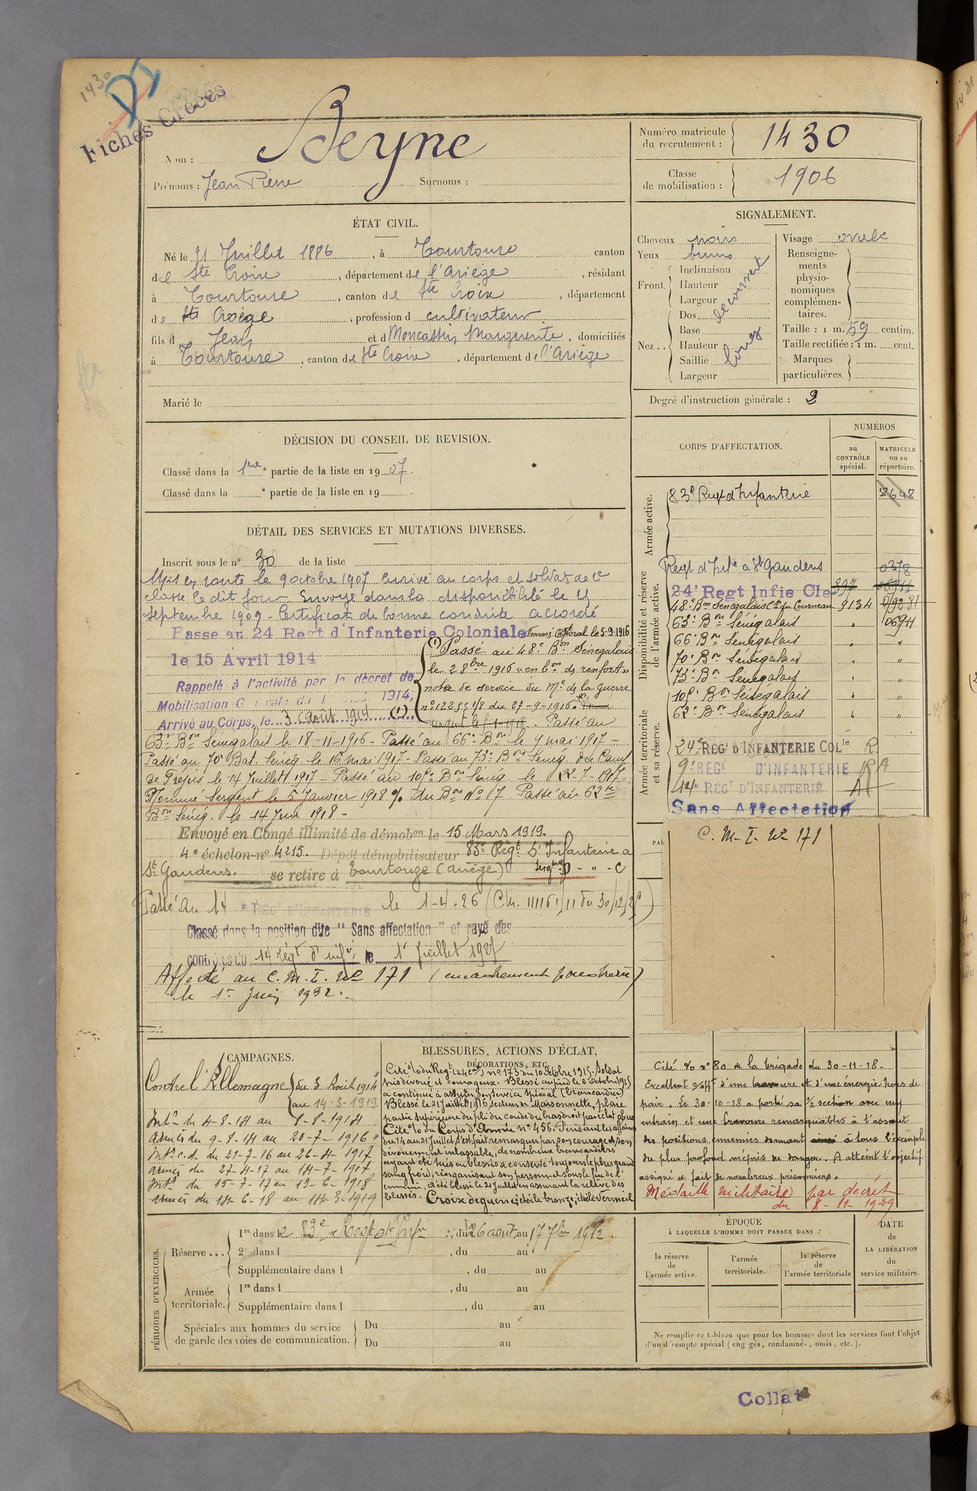 1430
DI
Fiches Créées
Nom : Beyne
Prénoms : Jean Pierre Surnoms :
Numéro matricule du recrutement : 1430
Classe de mobilisation : 1906
ÉTAT CIVIL.
Né le 21 Juillet 1886, à Tourtouse canton
de Ste Croix, département de l'Ariège, résidant
à Tourtouse, canton de Ste Croix, département
de l'Ariège, profession de cultivateur
fils de Jean et de Moncassin Marguerite, domiciliés
à Tourtouse, canton de Ste Croix, département de l'Ariège
Marié le
SIGNALEMENT.
Cheveux noirs Visage ovale
Yeux bruns
Front. Inclinaison Hauteur Largeur découvert
Nez.. Dos Base Hauteur Saillie Largeur
Renseignements physionomiques complémentaires.
Taille : 1 m. 59 centim.
Taille rectifiée : 1 m. cent.
Marques particulières.
Degré d'instruction générale : 3
DÉCISION DU CONSEIL DE REVISION.
Classé dans la 1re partie de la liste en 1907.
Classé dans la e partie de la liste en 19
DÉTAIL DES SERVICES ET MUTATIONS DIVERSES.
Inscrit sous le n° 30 de la liste
Mis en route le 9 octobre 1907 arrivé au corps et soldat de 2e
classe le dit jour. Envoyé dans la disponibilité le 25
septembre 1909. Certificat de bonne conduite accordé
Passé au 24 Regt d'Infanterie Coloniale Nommé Caporal le 5-9-1916
le 15 Avril 1914
Rappelé à l'activité par le décret de
Mobilisation Générale du 1914.
Arrivé au Corps, le 3 Août 1914 (1)
(1) Passé au 48e Bon Sénégalais
le 28 9bre 1916 en bon de renfort
note de service du Mre de la Guerre
n° 12295 1/8 du 27-9-1916.
Passé au
63e Bon Sénégalais le 18-11-1916 - Passé au 66e Bon le 9 mai 1917 -
Passé au 70e Bat. Sénég. le 16 mai 1917 - Passé au 73e Bon Sénég. du Camp
de Fréjus le 14 Juillet 1917 - Passé au 108e Bon Sénég. le
Nommé Sergent le 5 Janvier 1918 % du Bon N° 17 Passé au 62e
Bon Sénég. le 14 Juin 1918 -
Envoyé en Congé illimité de démobon le 15 Mars 1919.
4e échelon n° 4215. Dépôt démobilisateur 83e Régt d'Infanterie à
St Gaudens. se retire à Tourtouze (Ariège)
Passé au 14e RÉGt D'INFANTERIE le 1-4-26 (Cm. 11116 1/11 du 30/12/25)
Classé dans la position dite "Sans affectation" et rayé des
contrôles du 14 Régt d'inf. le 1er Juillet 1927
Affecté au C.M.I. No 171 (encasernement poudrerie)
le 1er Juin 1932.
CORPS D'AFFECTATION.
NUMÉROS
au CONTRÔLE spécial.
MATRICULE ou au répertoire.
Armée active.
83e Regt d'Infanterie 2648
Disponibilité et réserve de l'armée active.
Regt d'Infie à St Gaudens 0378
24e Regt Infie Cle 397
48e Bon Sénégalais Cp du Courneau 9134
63e Bon Sénégalais " 10694
66e Bon Sénégalais " "
70e Bon Sénégalais " "
73e Bon Sénégalais " "
108e Bon Sénégalais " "
62e Bon Sénégalais " "
Armée territoriale et sa réserve.
24e REGt D'INFANTERIE COLle R
9e REGt D'INFANTERIE RA
14e REGt D'INFANTERIE A
Sans Affectation
C.M.I. No 171
CAMPAGNES.
Contre l'Allemagne du 3 Août 1914
au 14-3-1919
Intr du 4-8-14 au 8-8-1914
Armées du 9-8-14 au 20-7-1916
Intr c.d. du 21-7-16 au 26-4-1917
Armées du 27-4-17 au 14-7-1917
Intr du 15-7-17 au 13-6-1918
Armées du 14-6-18 au 14-3-1919
BLESSURES, ACTIONS D'ÉCLAT, DÉCORATIONS, ETC.
Cité à l'o du Regt (24e Cal) n° 173 du 10 octobre 1915. Soldat
très dévoué et courageux. Blessé au pied le 6 octobre 1915
a continué à assurer son service spécial (brancardier)
Cité à l'o du Corps d'Armée n° 456.
blessés. Croix de guerre étoile bronze, étoile vermeil
Cité % n° 80 de la brigade du 30-11-18.
Excellent s/off d'une bravoure et d'une énergie hors de
pair. Le 30-10-18 a porté sa 1/2 section avec un
entrain et une bravoure remarquables à l'assaut
des positions ennemies donnant à tous l'exemple
du plus profond mépris du danger. A atteint l'objectif
assigné et fait de nombreux prisonniers.
Médaille militaire par décret
du 8-11-1929
PÉRIODES D'EXERCICES.
Réserve... 1re dans le 83e Regt d'Infie, du 26 août au 17 7bre 1912.
2e dans l , du au
Supplémentaire dans l , du au
Armée territoriale. 1re dans l , du au
Supplémentaire dans l , du au
Spéciales aux hommes du service de garde des voies de communication. Du au
Du au
ÉPOQUE
À LAQUELLE L'HOMME DOIT PASSER DANS :
la réserve de l'armée active.
l'armée territoriale.
la réserve de l'armée territoriale
DATE DE LA LIBÉRATION du service militaire.
Ne remplir ce tableau que pour les hommes dont les services font l'objet
d'un décompte spécial (engagés, condamnés, omis, etc.).
Collat